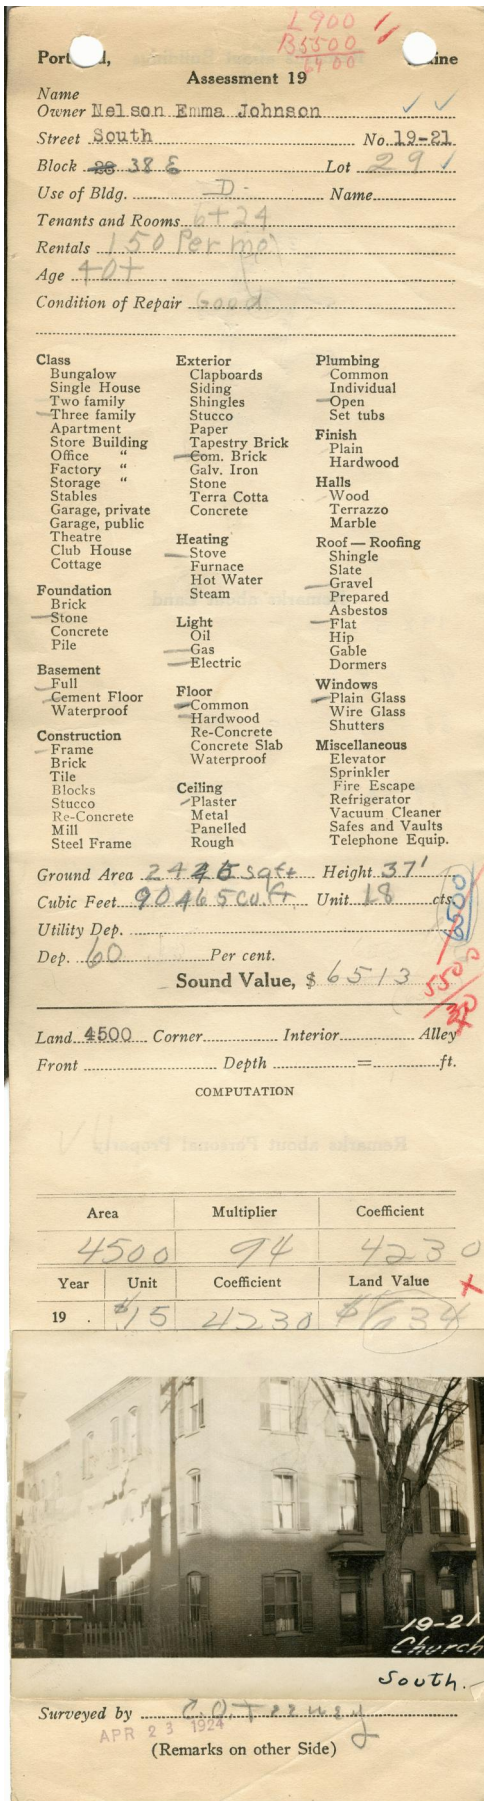 L900
B5500
6400
Port d, aine
Assessment 19
Name
Owner Nelson Emma Johnson
Street South No. 19-21
Block 28 38 E Lot 291
Use of Bldg. D. Name
Tenants and Rooms 6+24
Rentals 150 Per mo
Age 40+
Condition of Repair Good
Class
Bungalow
Single House
Two family
Three family
Apartment
Store Building
Office "
Factory "
Storage "
Stables
Garage, private
Garage, public
Theatre
Club House
Cottage
Foundation
Brick
Stone
Concrete
Pile
Basement
Full
Cement Floor
Waterproof
Construction
Frame
Brick
Tile
Blocks
Stucco
Re-Concrete
Mill
Steel Frame
Exterior
Clapboards
Siding
Shingles
Stucco
Paper
Tapestry Brick
Com. Brick
Galv. Iron
Stone
Terra Cotta
Concrete
Heating
Stove
Furnace
Hot Water
Steam
Light
Oil
Gas
Electric
Floor
Common
Hardwood
Re-Concrete
Concrete Slab
Waterproof
Ceiling
Plaster
Metal
Panelled
Rough
Plumbing
Common
Individual
Open
Set tubs
Finish
Plain
Hardwood
Halls
Wood
Terrazzo
Marble
Roof — Roofing
Shingle
Slate
Gravel
Prepared
Asbestos
Flat
Hip
Gable
Dormers
Windows
Plain Glass
Wire Glass
Shutters
Miscellaneous
Elevator
Sprinkler
Fire Escape
Refrigerator
Vacuum Cleaner
Safes and Vaults
Telephone Equip.
Ground Area 2445 sq ft Height 37'
Cubic Feet 90465 cu. ft Unit 18 cts.
6500
Utility Dep.
Dep. 60 Per cent.
Sound Value, $ 6513
5500
Land 4500 Corner Interior Alley
Front Depth = ft.
COMPUTATION
Area Multiplier Coefficient
4500 94 4230
Year Unit Coefficient Land Value
19 . $15 4230 $634
19-21
Church
South.
Surveyed by
APR 23 1924
(Remarks on other Side)